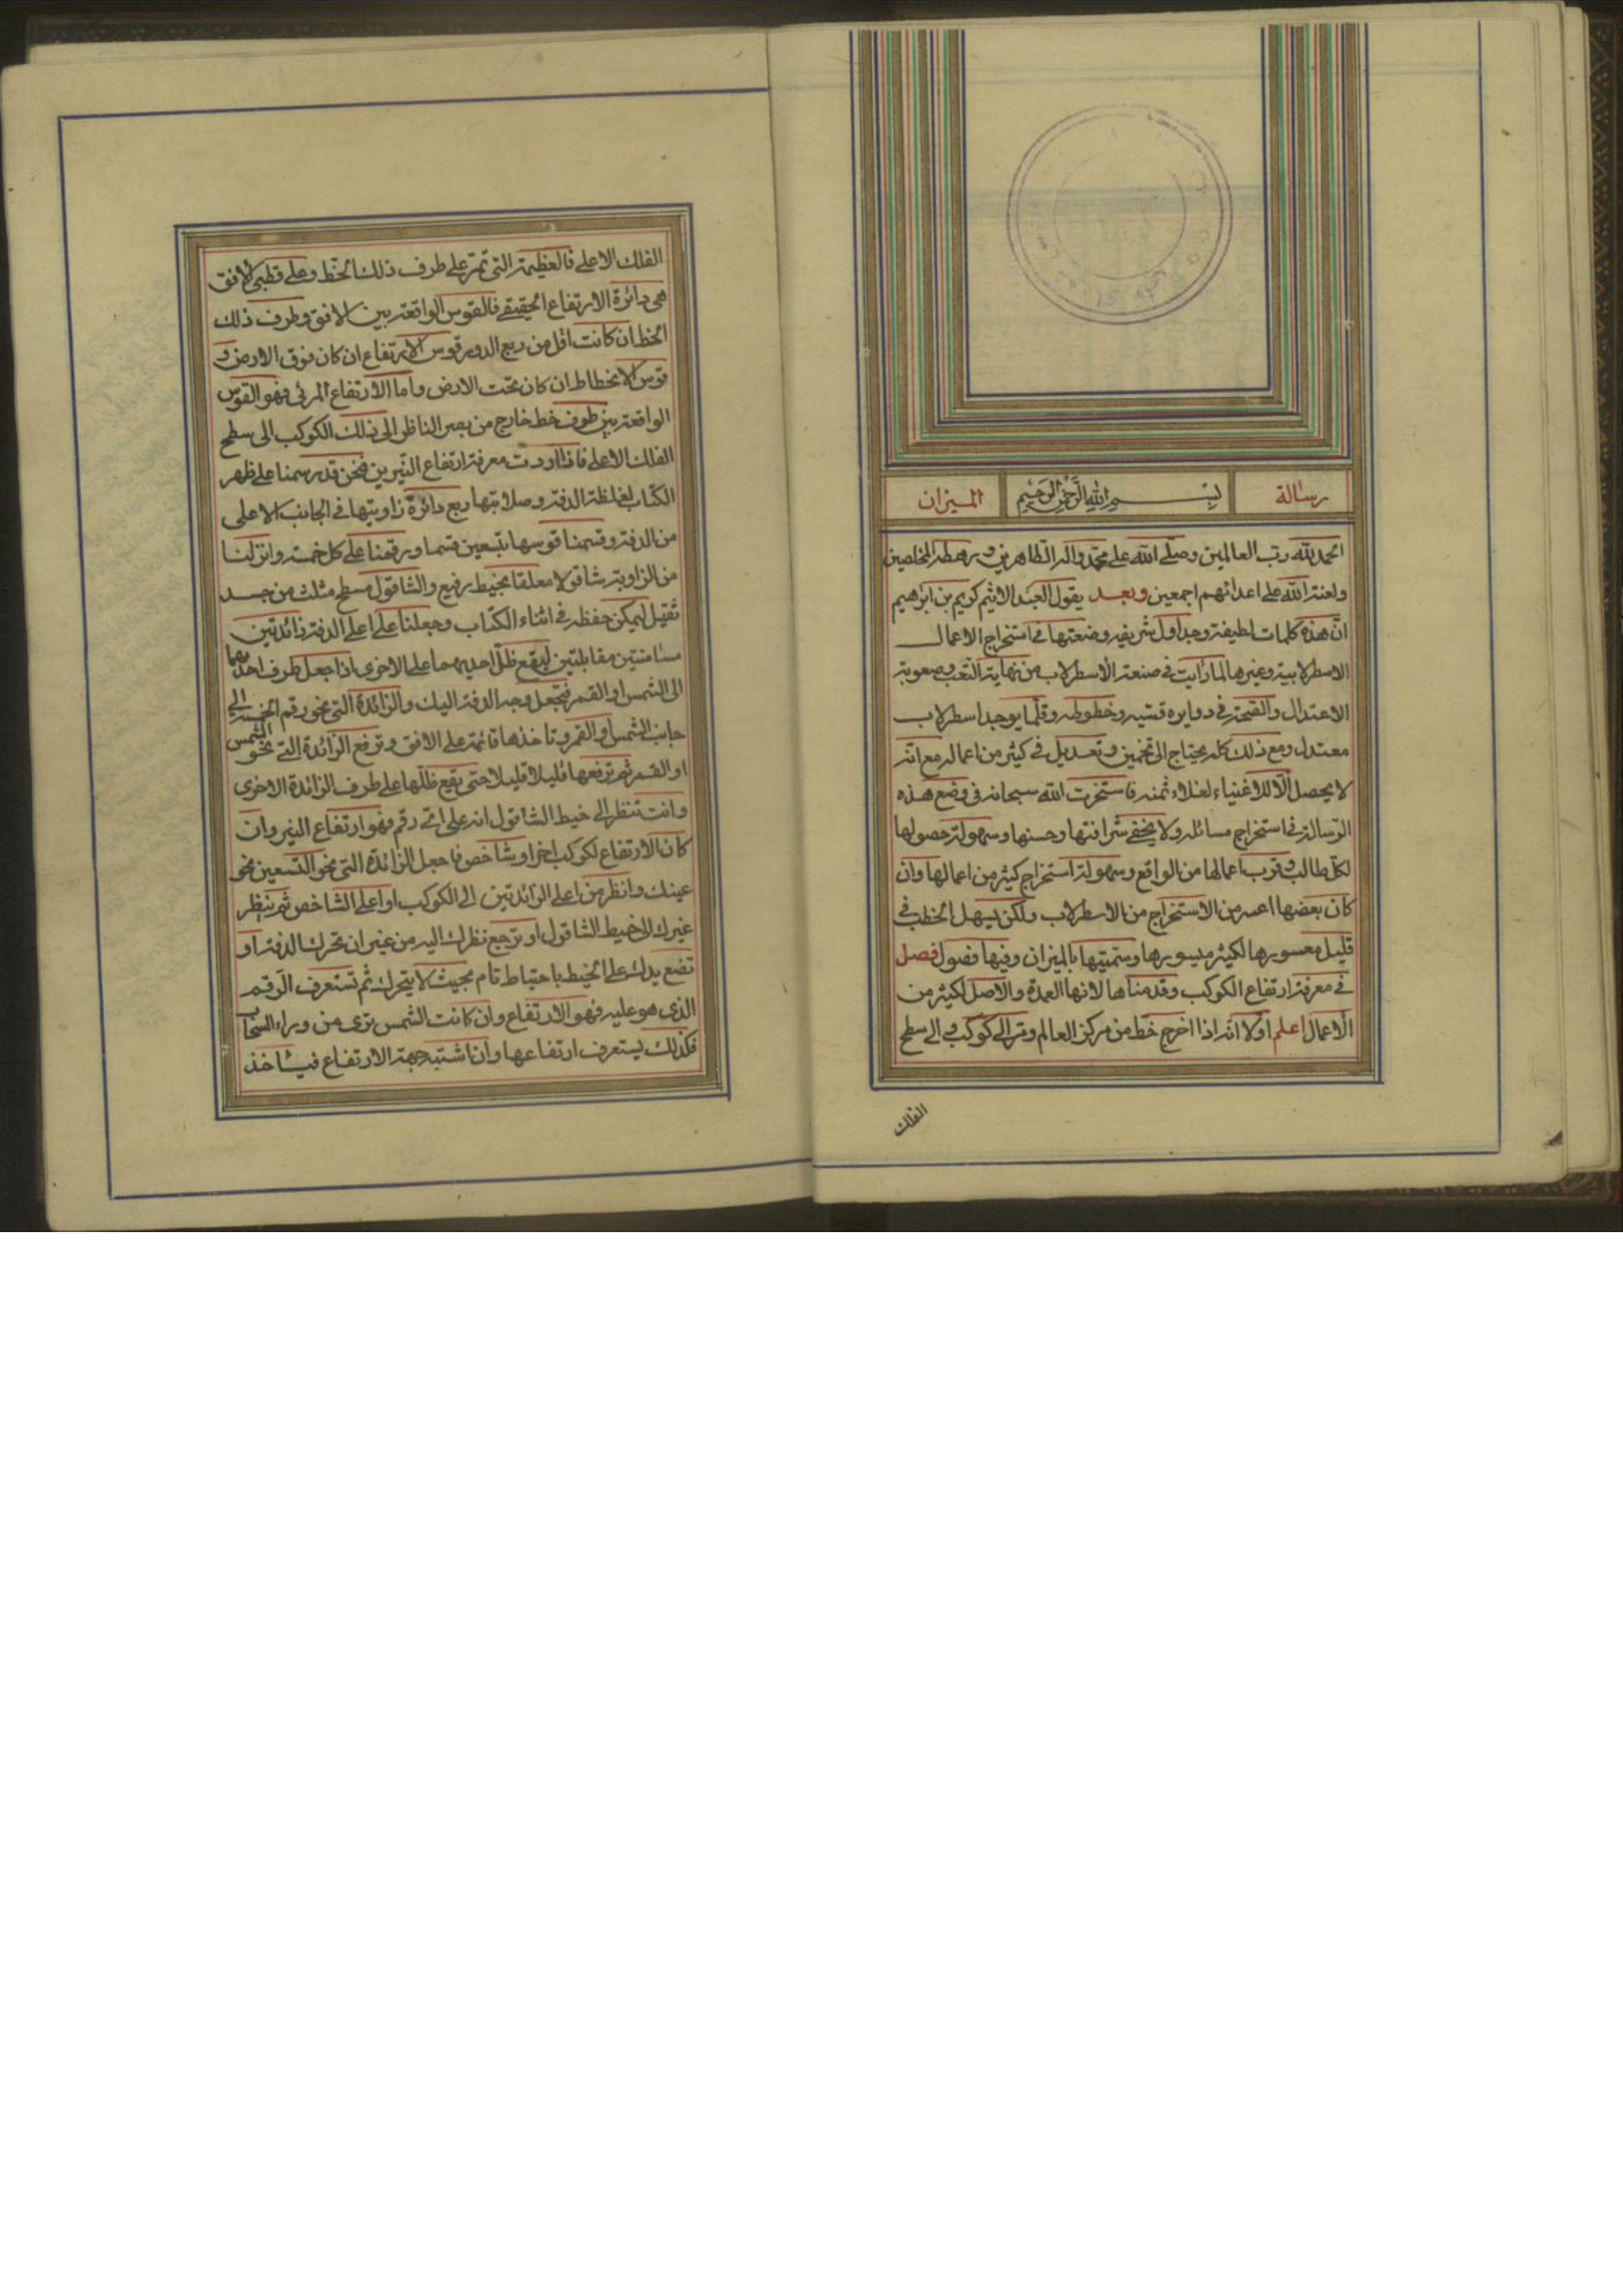 رسالة
بسم الله الرحمن الرحيم
الميزان
الحمد لله رب العالمين وصلى الله على محمد واله الطاهرين ورهطه المخلصين
ولعنة الله على اعدائهم اجمعين وبعد يقول العبد الاثيم كريم بن ابرهيم
ان هذه كلمات لطيفة وجداول شريفه وضعتها فى استخراج الاعمال
الاسطرلابية وغيرها لما رايت فى صنعة الاسطرلاب من نهاية التعب وصعوبة
الاعتدال والصحة فى دوايره وقسيه وخطوطه وقلما يوجد اسطرلاب
معتدل ومع ذلك كله يحتاج الى تخمين وتعديل فى كثير من اعماله مع انه
لا يحصل الا للاغنياء لغلاء ثمنه فاستخرت الله سبحانه فى وضع هذه
الرسالة فى استخراج مسائله ولا يخفى شرافتها وحسنها وسهولة حصولها
لكل طالب وقرب اعمالها من الواقع وسهولة استخراج كثير من اعمالها وان
كان بعضها اعسر من الاستخراج من الاسطرلاب ولكن يسهل الخطب فى
قليل معسورها لكثير ميسورها وسميتها بالميزان وفيها فصول فصل
فى معرفة ارتفاع الكوكب وقدمناها لانها العمدة والاصل لكثير من
الاعمال اعلم اولا انه اذا اخرج خط من مركز العالم ومر الى كوكب الى سطح
الفلك
الفلك الاعلى فالعظيمة التى تمر على طرف ذلك الخط وعلى قطبى الافق
هى دائرة الارتفاع الحقيقى فالقوس الواقعة بين الافق وطرف ذلك
الخط ان كانت اقل من ربع الدور قوس الارتفاع ان كان فوق الارض و
قوس الانحطاط ان كان تحت الارض واما الارتفاع المرئى فهو القوس
الواقعة بين طرف خط خارج من بصر الناظر الى ذلك الكوكب الى سطح
الفلك الاعلى فاذا اردت معرفة ارتفاع النيرين فنحن قد رسمنا على ظهر
الكتاب لغلظة الدفة وصلابتها ربع دائرة زاويتها فى الجانب الاعلى
من الدفة وقسمنا قوسها بتسعين قسما ورقمنا على كل خمسة وانزلنا
من الزاوية شاقولا معلقا بخيط رفيع والشاقول مسطح مثلث من جسد
ثقيل ليمكن حفظه فى اثناء الكتاب وجعلنا على اعلى الدفة زائدتين
مسامتتين مقابلتين ليقع ظل احديهما على الاخرى اذا جعل طرف احديهما
الى الشمس او القمر فتجعل وجه الدفة اليك والزائدة التى نحو رقم الخمسة الى
جانب الشمس او القمر وتاخذها قائمة على الافق وترفع الزائدة التى نحو الشمس
او القمر ثم ترفعها قليلا قليلا حتى يقع ظلها على طرف الزائدة الاخرى
وانت تنظر الى خيط الشاقول انه على اى رقم فهو ارتفاع النير وان
كان الارتفاع لكوكب اخر او شاخص فاجعل الزائدة التى نحو التسعين نحو
عينك وانظر من اعلى الزائدتين الى الكوكب او اعلى الشاخص ثم ينظر
غيرك الى خيط الشاقول او ترجع نظرك اليه من غير ان تحرك الدفة او
تضع يدك على الخيط باحتياط تام بحيث لا يتحرك ثم تستعرف الرقم
الذى هو عليه فهو الارتفاع وان كانت الشمس ترى من وراء السحاب
فكذلك يستعرف ارتفاعها وان اشتبه جهة الارتفاع فيؤخذ